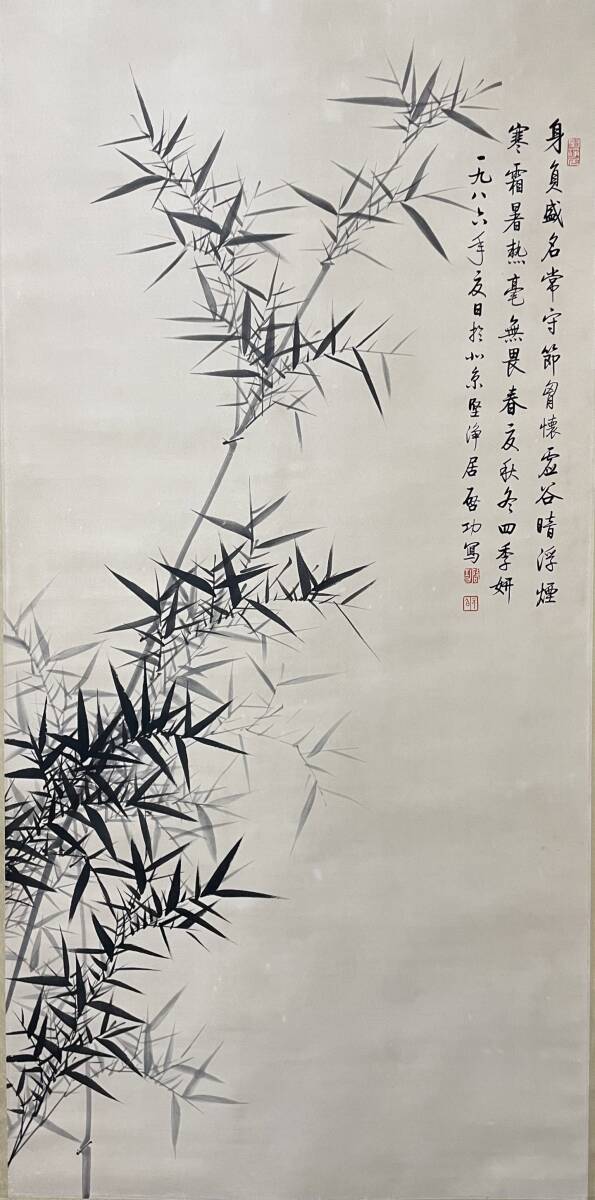 身負盛名常守節胷懷虛谷暗浮煙
寒霜暑熱毫無畏春夏秋冬四季妍
一九八六年夏日於北京堅淨居啓功寫